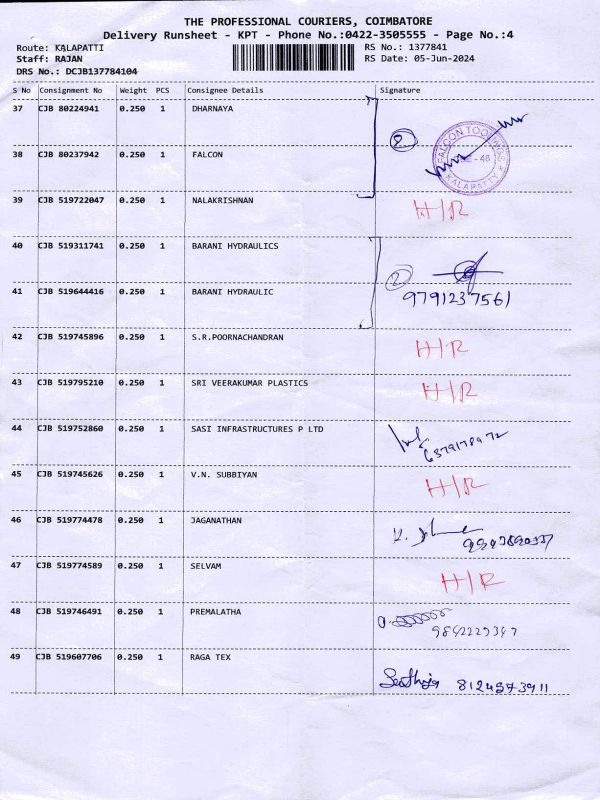 THE PROFESSIONAL COURIERS, COIMBATORE
Delivery Runsheet - KPT - Phone No.:0422-3505555 - Page No.:4
Route: KALAPATTI RS No.: 1377841
Staff: RAJAN RS Date: 05-Jun-2024
DRS No.: DCJB137784104
S No Consignment No Weight PCS Consignee Details Signature
37 CJB 80224941 0.250 1 DHARNAYA
38 CJB 80237942 0.250 1 FALCON
FALCON TOOLINGS
KALAPATTY
39 CJB 519722047 0.250 1 NALAKRISHNAN H/R
40 CJB 519311741 0.250 1 BARANI HYDRAULICS
41 CJB 519644416 0.250 1 BARANI HYDRAULIC 9791237561
42 CJB 519745896 0.250 1 S.R.POORNACHANDRAN H/R
43 CJB 519795210 0.250 1 SRI VEERAKUMAR PLASTICS H/R
44 CJB 519752860 0.250 1 SASI INFRASTRUCTURES P LTD
45 CJB 519745626 0.250 1 V.N. SUBBIYAN H/R
46 CJB 519774478 0.250 1 JAGANATHAN
47 CJB 519774589 0.250 1 SELVAM H/R
48 CJB 519746491 0.250 1 PREMALATHA
49 CJB 519607706 0.250 1 RAGA TEX